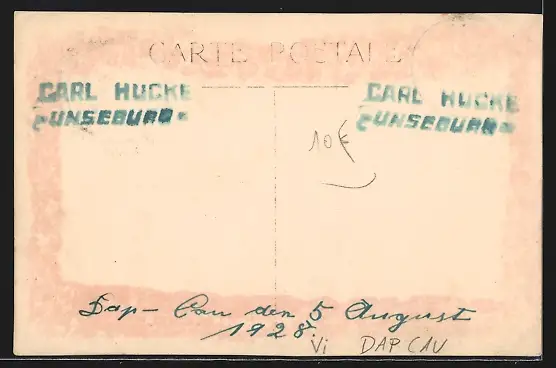 CARTE POSTALE
CARL HUCKE
UNSEBURG
CARL HUCKE
UNSEBURG
10€
Dap-Cau den 5 August
1928.
Vi DAP CAU